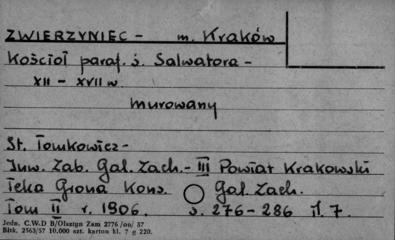 ZWIERZYNIEC – m. Kraków
Kościół paraf. ś. Salwatora –
XII – XVII w.
murowany
St. Tomkowicz –
Inw. Zab. Gal. Zach. – III Powiat Krakowski
Teka Grona Kons. Gal. Zach.
Tom II r. 1906 s. 276 – 286 il. 7.
Jedn. C.W.D B/Olsztyn Zam 2776/oo/57
Bisk. 2563/57 10.000 szt. karton kl. 7 g 220.